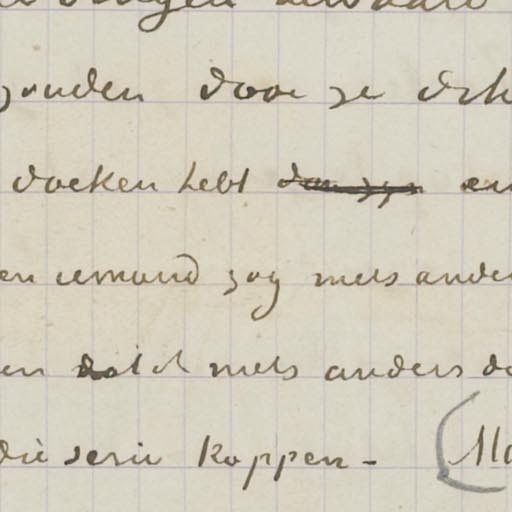 zouden door ze
doeken hebt dan zyn en
en iemand zag niets ander
en niets anders d
die serie koppen - (